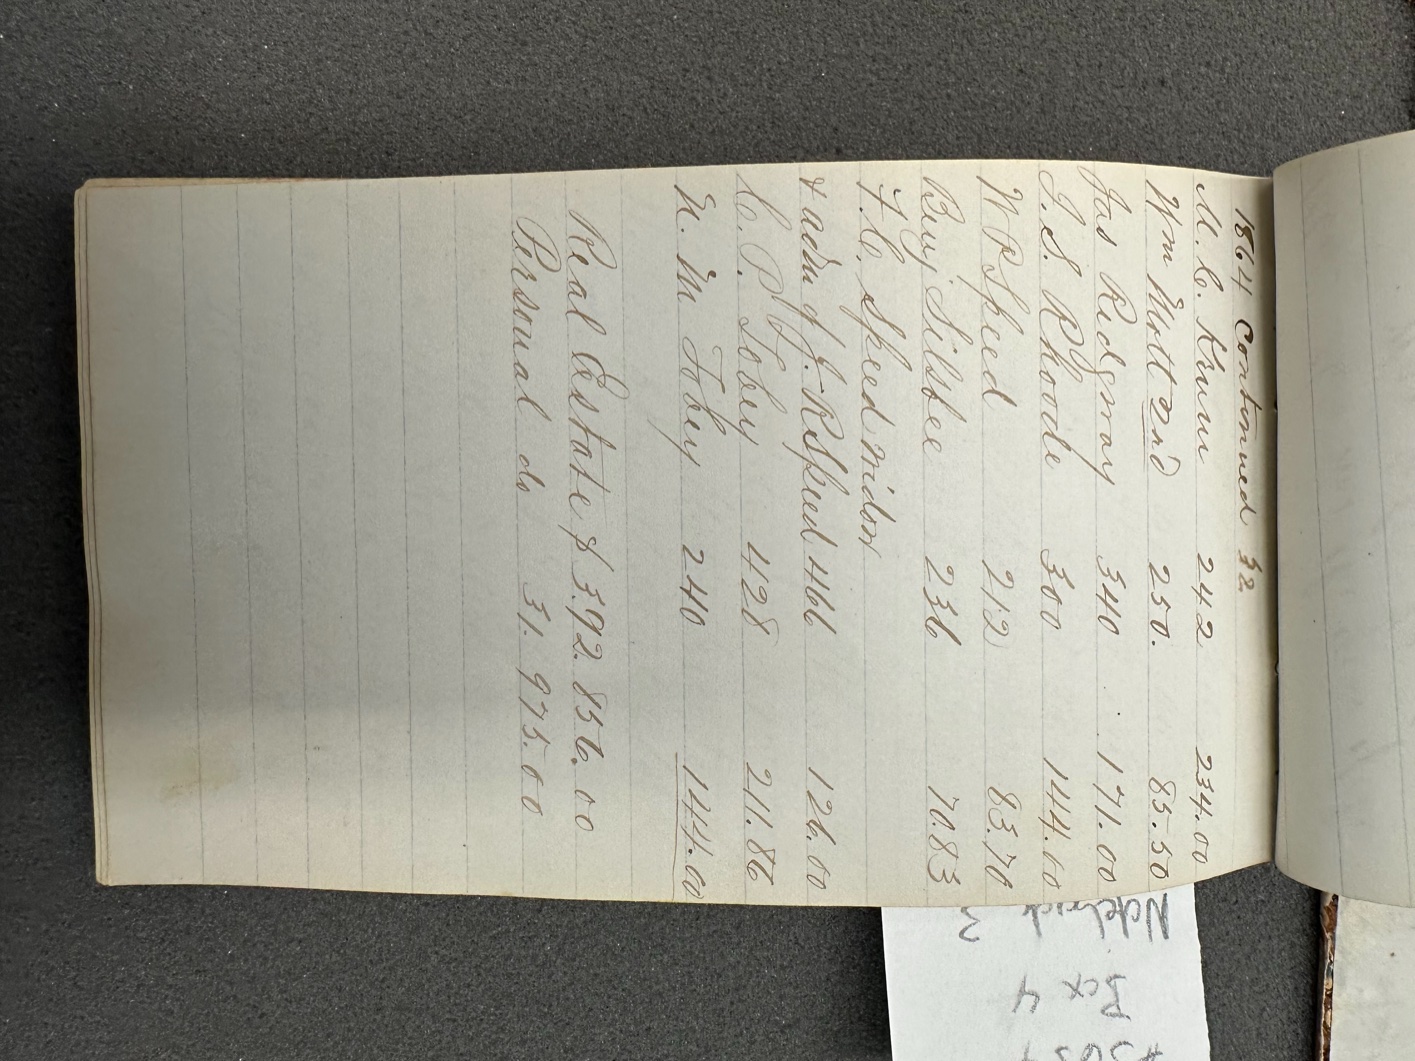 1864 Continued 32
M. C. Krum 242 234.00
Wm Mott 2nd 250. 85.50
Jas Ridgway 340 171.00
J. S. Rhoode 300 144.00
W P Speed 212 83.70
Benj Silsbee 236 70.83
F. C. Speed widow
& adm of J. R Speed 466 126.00
C. P. Tobey 428 211.86
N. M Tobey 240 144.00
Real Estate $ 392.856.00
Personal do 31.975.00
Notebook 3
Box 4